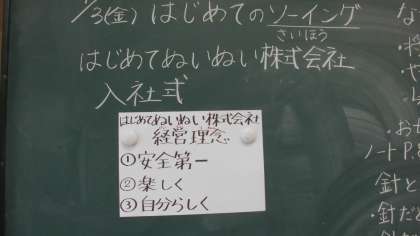 1/3(金)はじめてのソーイング
さいほう
はじめてぬいぬい株式会社
入社式
はじめてぬいぬい株式会社
経営理念
①安全第一
②楽しく
③自分らしく
な
ノートP.8
針と
・針だと